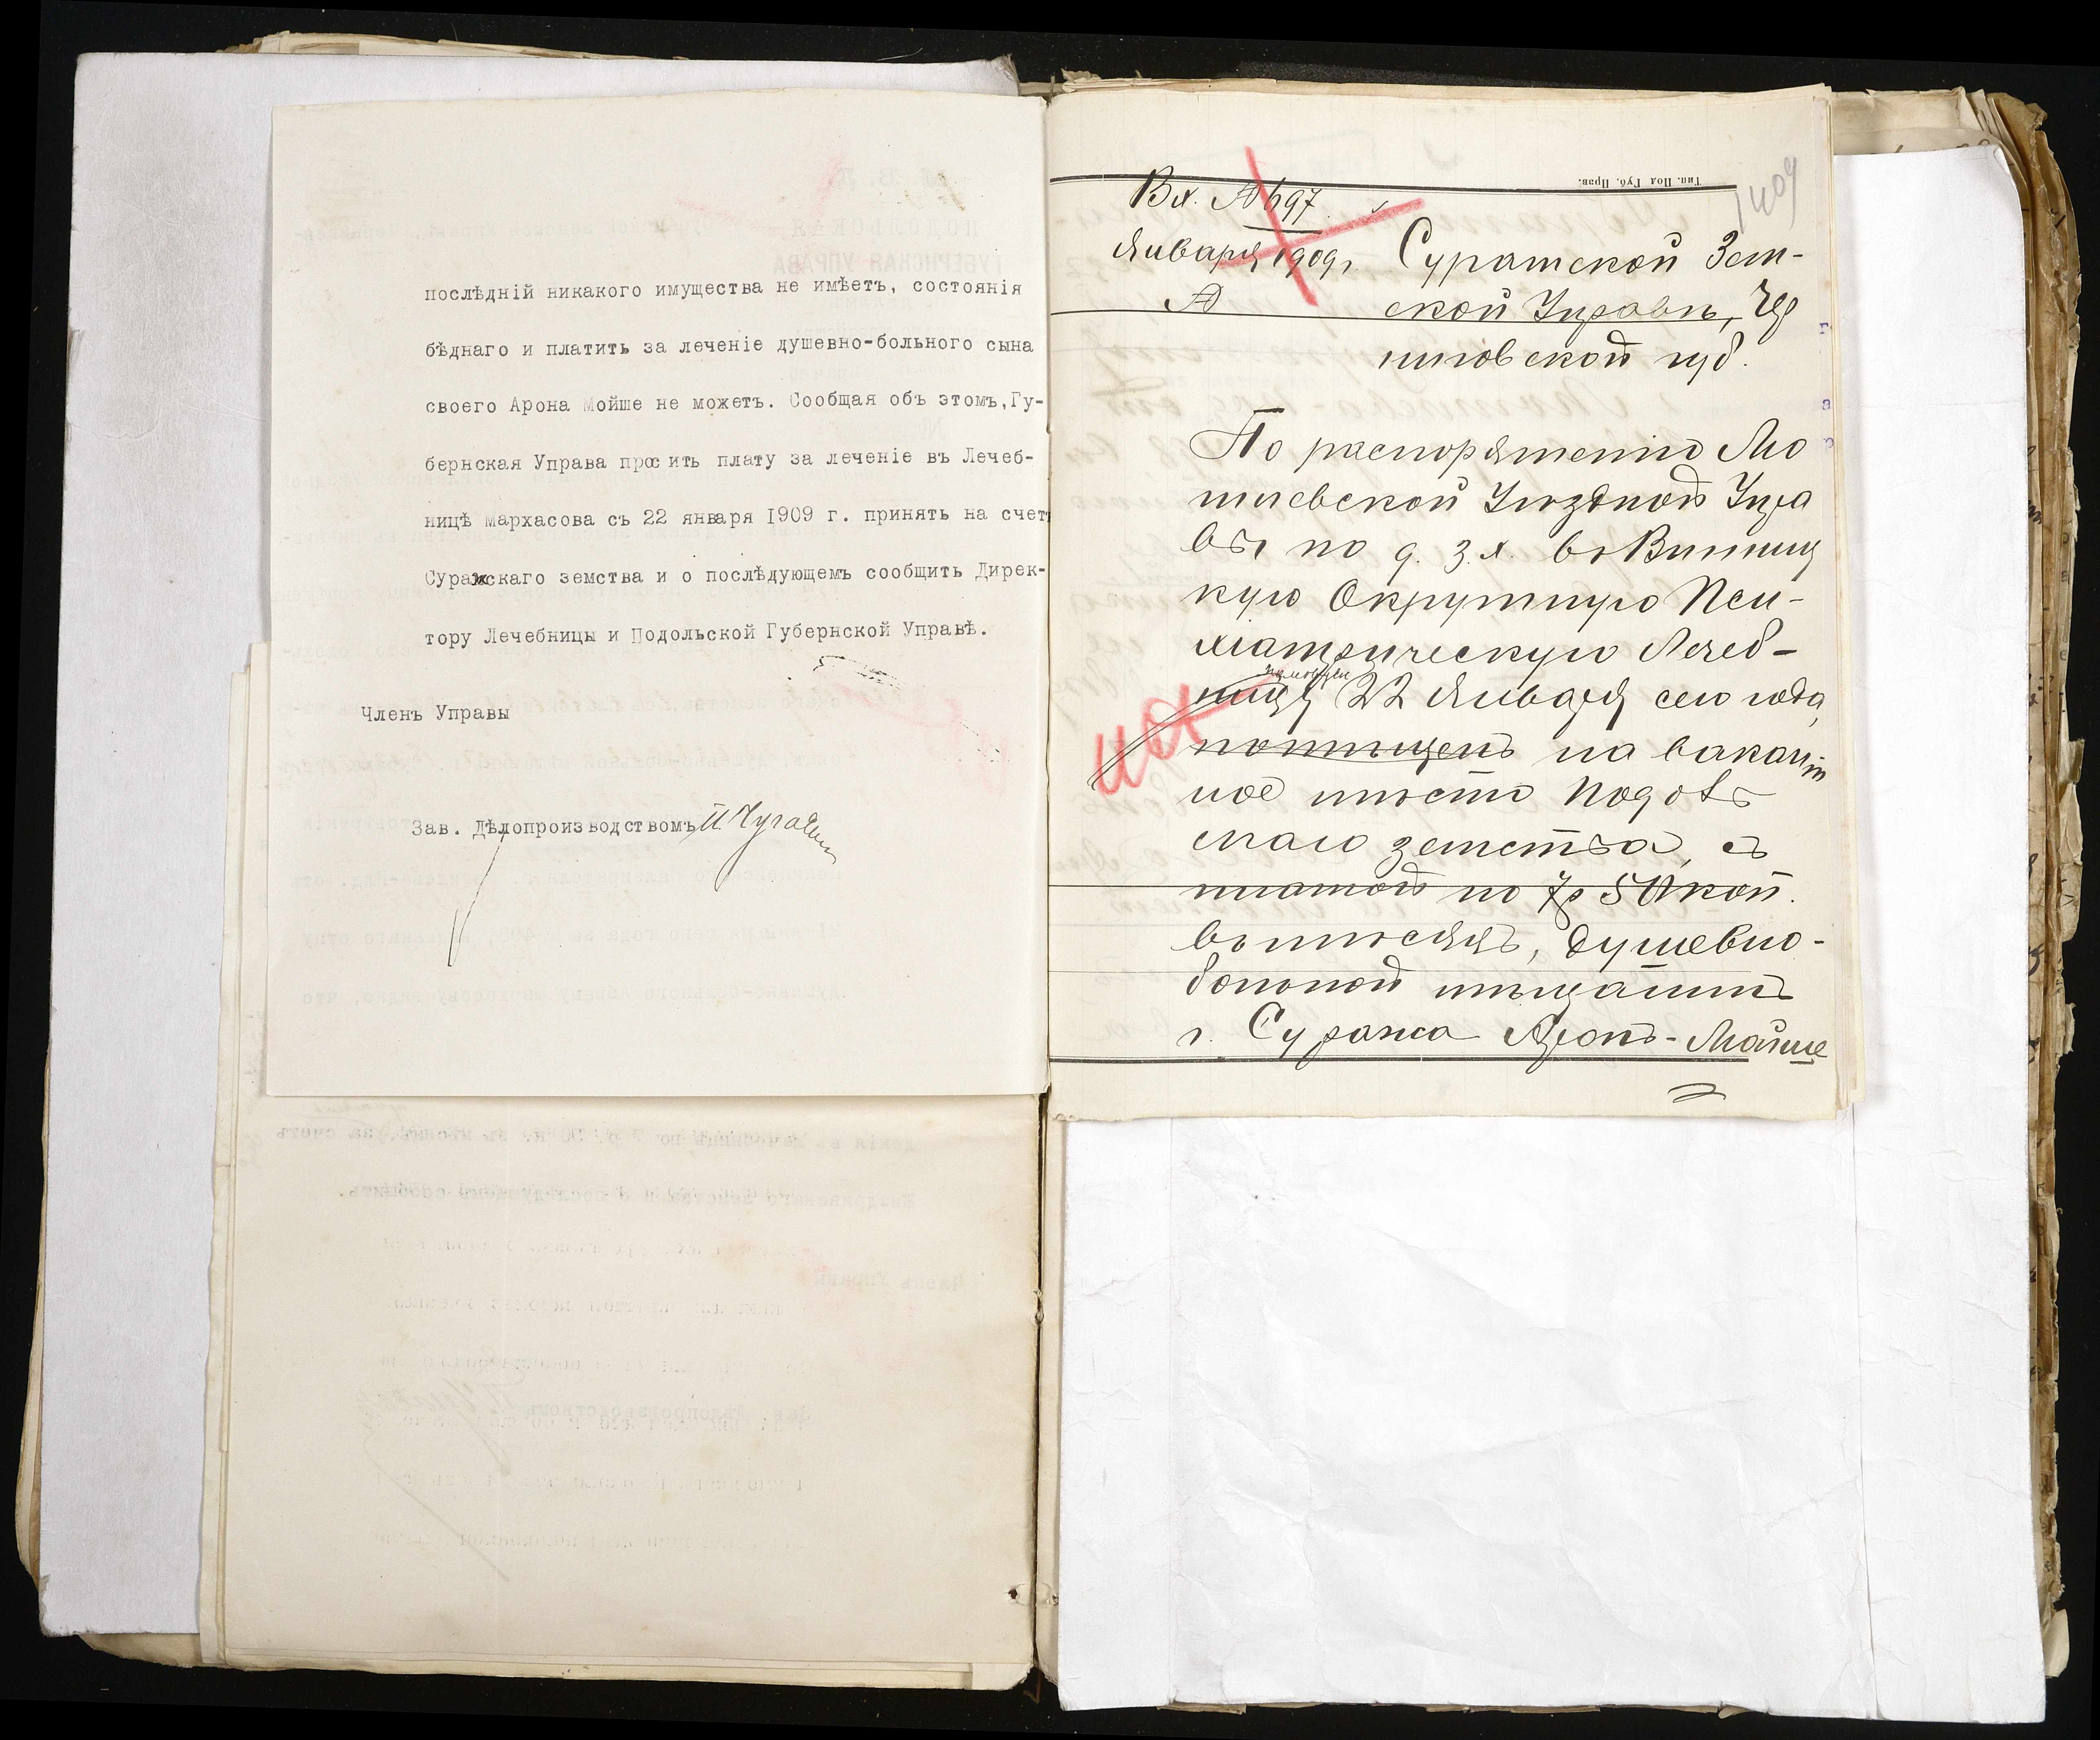 послѣдній никакого имущества не имѣетъ, состоянія
бѣднаго и платить за леченіе душевно-больного сына
своего Арона Мойше не можетъ. Сообщая объ этомъ, Гу-
бернская Управа просить плату за леченіе въ Лечеб-
ницѣ Мархасова съ 22 января 1909 г. принять на счет
Суражскаго земства и о послѣдующемъ сообщить Дирек-
тору Лечебницы и Подольской Губернской Управѣ.
Членъ Управы
Зав. Дѣлопроизводствомъ
Тип. Под Губ. Прав.
409
Вх. № 697
Января 1909 г.
№
Суражской Зем-
ской Управѣ, Чер
ниговской губ.
По распоряженію Мо
гилевской Уѣздной Упра
вы по д. з. х. въ Винниц
кую Окружную Пси-
хіатрическую Лечеб-
ницу 22 Января сего года,
помѣщенъ на вакант
ное мѣсто Подоль
скаго земства, съ
платой по 7 р 50 коп.
въ мѣсяцъ, душевно-
больной мѣщанинъ
г. Суража Аронъ-Мойше